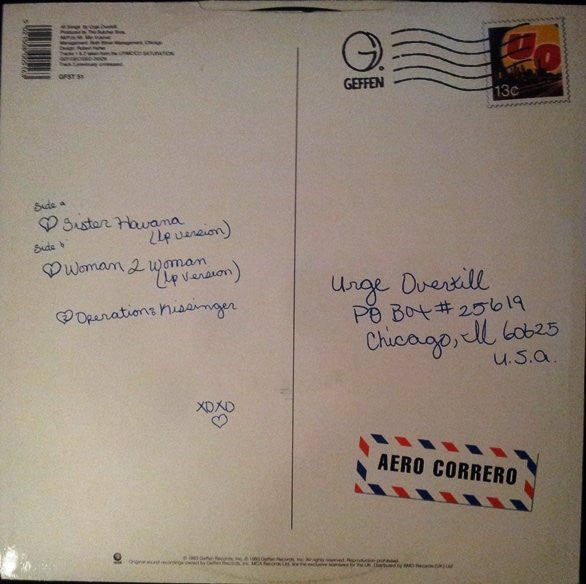 All Songs by Urge Overkill.
Produced by The Butcher Bros.
Management: Both Blitner Management, Chicago
Design: Robert Fisher
Tracks 1 & 2 taken from the LP/MC/CD SATURATION.
Track 3 previously unreleased.
GFST 51
GEFFEN
UO
13c
Side a
1 Sister Havana
(Lp Version)
Side b
1 Woman 2 Woman
(Lp Version)
2 Operation: Kissinger
XOXO
Urge Overkill
PO Box # 25619
Chicago, Il 60625
U.S.a.
AERO CORRERO
℗ 1993 Geffen Records, Inc. © 1993 Geffen Records, Inc. All rights reserved. Reproduction prohibited.
Original sound recordings owned by Geffen Records, Inc. MCA Records Ltd. are the exclusive licensees for the UK. Distributed by BMG Records (UK) Ltd